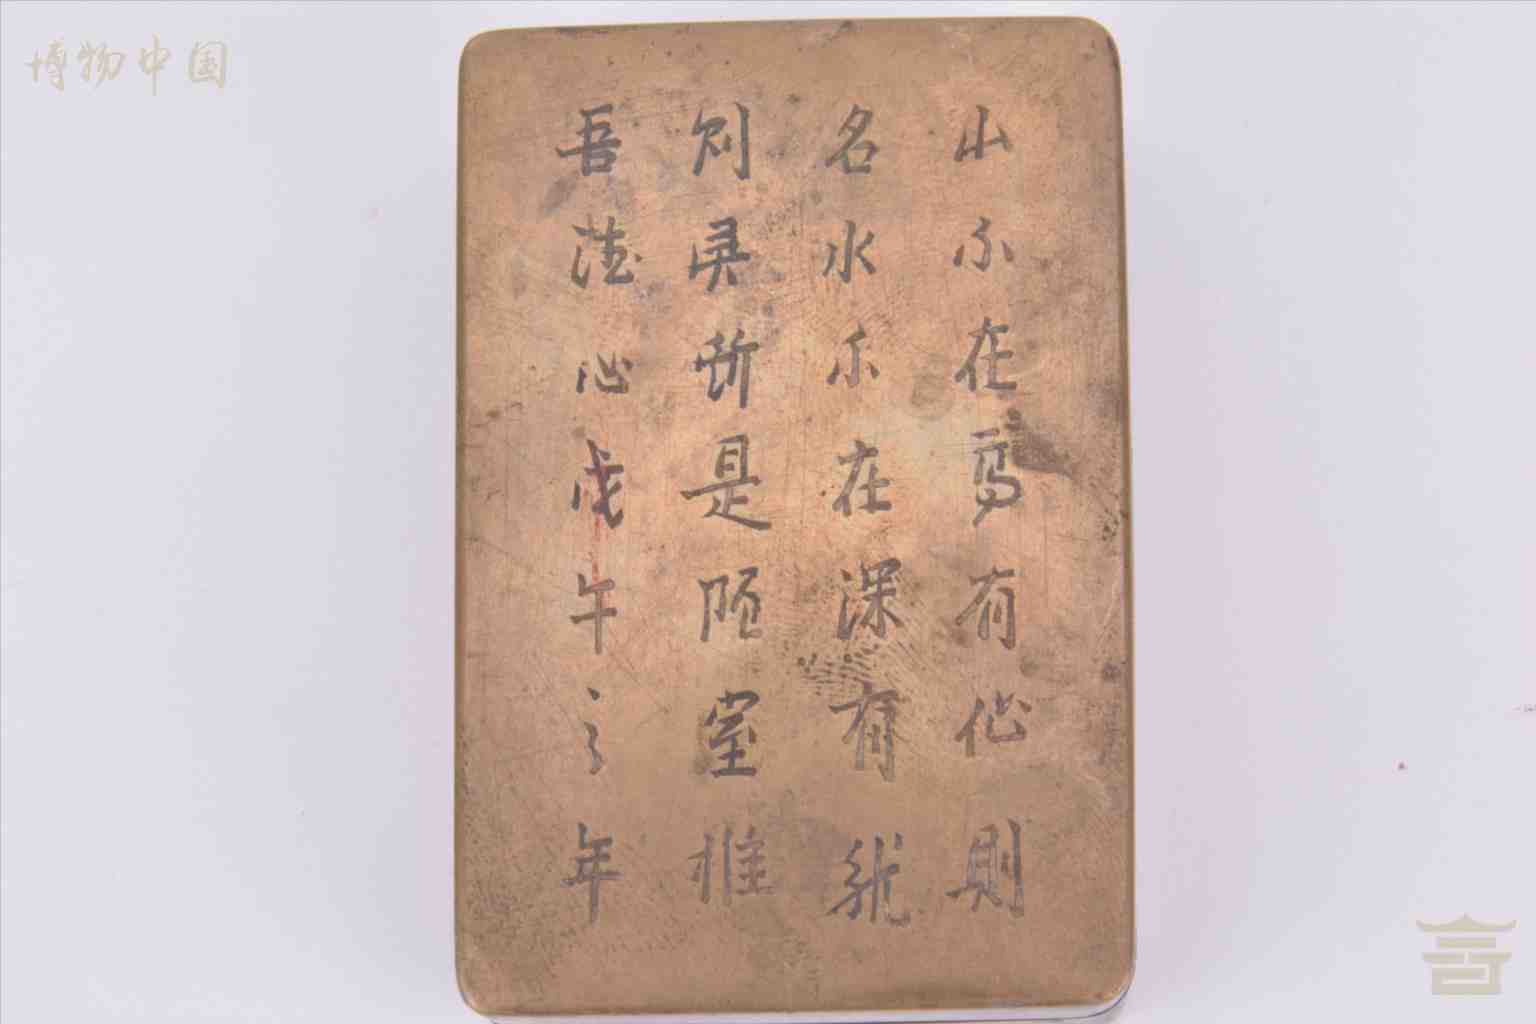 博物中国
山不在高有仙則
名水不在深有龙
则灵斯是陋室惟
吾德心戊午之年